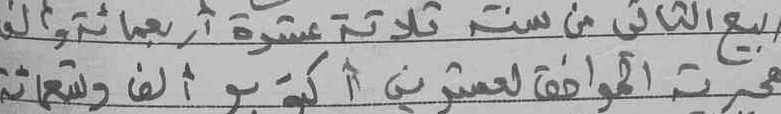 ربيع الثاني من سنة ثلاثة عشرة أربعمائة وألف
هجرية الموافق لعشرين أكتوبر ألف وتسعمائة